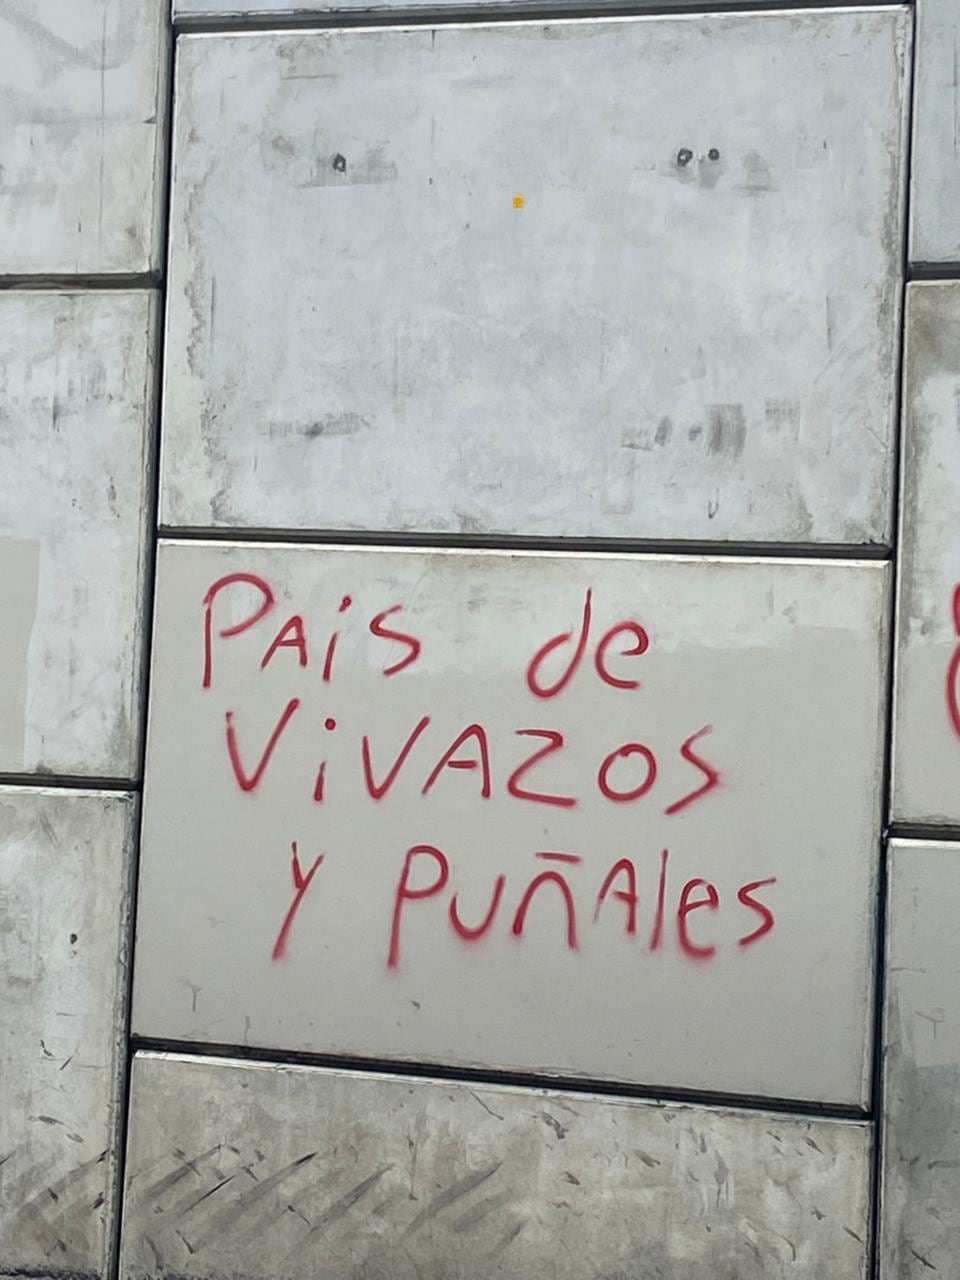 PAis de
ViVAZOS
y PuñAles